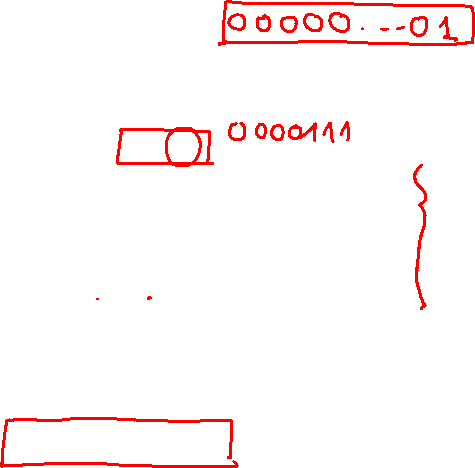 00000...-01
0000111